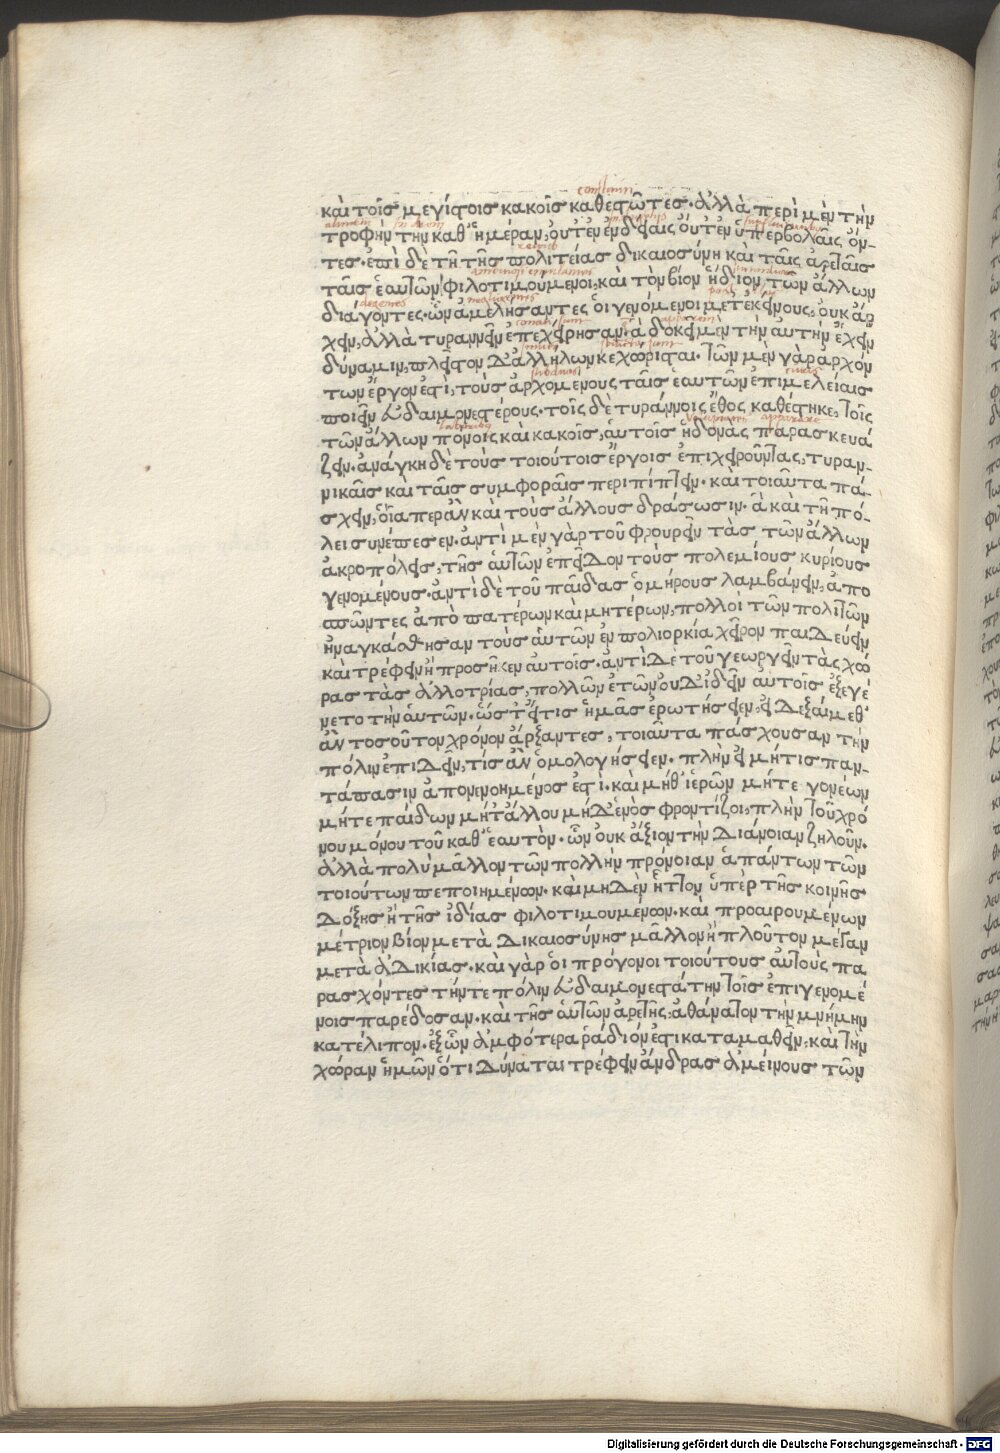 καὶ τοῖς μεγίστοις κακοῖς καθεστῶτες. ἀλλὰ περὶ μὲν τὴν
τροφὴν τὴν καθ' ἡμέραν, οὔτ' ἐν ἐνδείαις οὔτ' ἐν ὑπερβολαῖς ὄν-
τες. ἐπὶ δὲ τῇ τῆς πολιτείας δικαιοσύνῃ καὶ ταῖς ἀρεταῖς
ταῖς ἑαυτῶν φιλοτιμούμενοι, καὶ τὸν βίον ἥδιον τῶν ἄλλων
διάγοντες. ὧν ἀμελήσαντες οἱ γενόμενοι μετ' ἐκείνους, οὐκ ἄρ
χειν, ἀλλὰ τυραννεῖν ἐπεχείρησαν. ἃ δοκεῖ μὲν τὴν αὐτὴν ἔχειν
δύναμιν, πλεῖστον δ' ἀλλήλων κεχώρισται. τῶν μὲν γὰρ ἀρχόν
των ἔργον ἐστὶ, τοὺς ἀρχομένους ταῖς ἑαυτῶν ἐπιμελείαις
ποιεῖν εὐδαιμονεστέρους. τοῖς δὲ τυράννοις ἔθος καθέστηκε, τοῖς
τῶν ἄλλων πόνοις καὶ κακοῖς, αὑτοῖς ἡδονὰς παρασκευά
ζειν. ἀνάγκη δὲ τοὺς τοιούτοις ἔργοις ἐπιχειροῦντας, τυραν-
νικαῖς καὶ ταῖς συμφοραῖς περιπίπτειν. καὶ τοιαῦτα πά-
σχειν, οἷά περ ἂν καὶ τοὺς ἄλλους δράσωσιν. ἃ καὶ τῇ πό-
λει συνέπεσεν. ἀντὶ μὲν γὰρ τοῦ φρουρεῖν τὰς τῶν ἄλλων
ἀκροπόλεις, τῆς αὑτῶν ἐπεῖδον τοὺς πολεμίους κυρίους
γενομένους. ἀντὶ δὲ τοῦ παῖδας ὁμήρους λαμβάνειν, ἀπο
σπῶντες ἀπὸ πατέρων καὶ μητέρων, πολλοὶ τῶν πολιτῶν
ἠναγκάσθησαν τοὺς αὑτῶν ἐν πολιορκίᾳ χεῖρον παιδεύειν
καὶ τρέφειν ἢ προσῆκεν αὐτοῖς. ἀντὶ δὲ τοῦ γεωργεῖν τὰς χώ
ρας τὰς ἀλλοτρίας, πολλῶν ἐτῶν οὐδ' ἰδεῖν αὐτοῖς ἐξεγέ
νετο τὴν αὑτῶν. ὥστ' εἴ τις ἡμᾶς ἐρωτήσειεν, εἰ δεξαίμεθ'
ἂν τοσοῦτον χρόνον ἄρξαντες, τοιαῦτα πάσχουσαν τὴν
πόλιν ἐπιδεῖν, τίς ἂν ὁμολογήσειεν. πλὴν εἰ μή τις παν-
τάπασιν ἀπονενοημένος ἐστὶ. καὶ μήθ' ἱερῶν μήτε γονέων
μήτε παίδων μήτ' ἄλλου μηδενὸς φροντίζοι, πλὴν τοῦ χρό
νου μόνου τοῦ καθ' ἑαυτὸν. ὧν οὐκ ἄξιον τὴν διάνοιαν ζηλοῦν.
ἀλλὰ πολὺ μᾶλλον τῶν πολλὴν πρόνοιαν ἁπάντων τῶν
τοιούτων πεποιημένων. καὶ μηδὲν ἧττον ὑπὲρ τῆς κοινῆς
δόξης ἢ τῆς ἰδίας φιλοτιμουμένων. καὶ προαιρουμένων
μέτριον βίον μετὰ δικαιοσύνης μᾶλλον ἢ πλοῦτον μέγαν
μετὰ ἀδικίας. καὶ γὰρ οἱ πρόγονοι τοιούτους αὑτοὺς πα
ρασχόντες τήν τε πόλιν εὐδαιμονεστάτην τοῖς ἐπιγενομέ
νοις παρέδοσαν. καὶ τῆς αὑτῶν ἀρετῆς, ἀθάνατον τὴν μνήμην
κατέλιπον. ἐξ ὧν ἀμφότερα ῥᾴδιόν ἐστι καταμαθεῖν, καὶ τὴν
χώραν ἡμῶν ὅτι δύναται τρέφειν ἄνδρας ἀμείνους τῶν
Digitalisierung gefördert durch die Deutsche Forschungsgemeinschaft - DFG